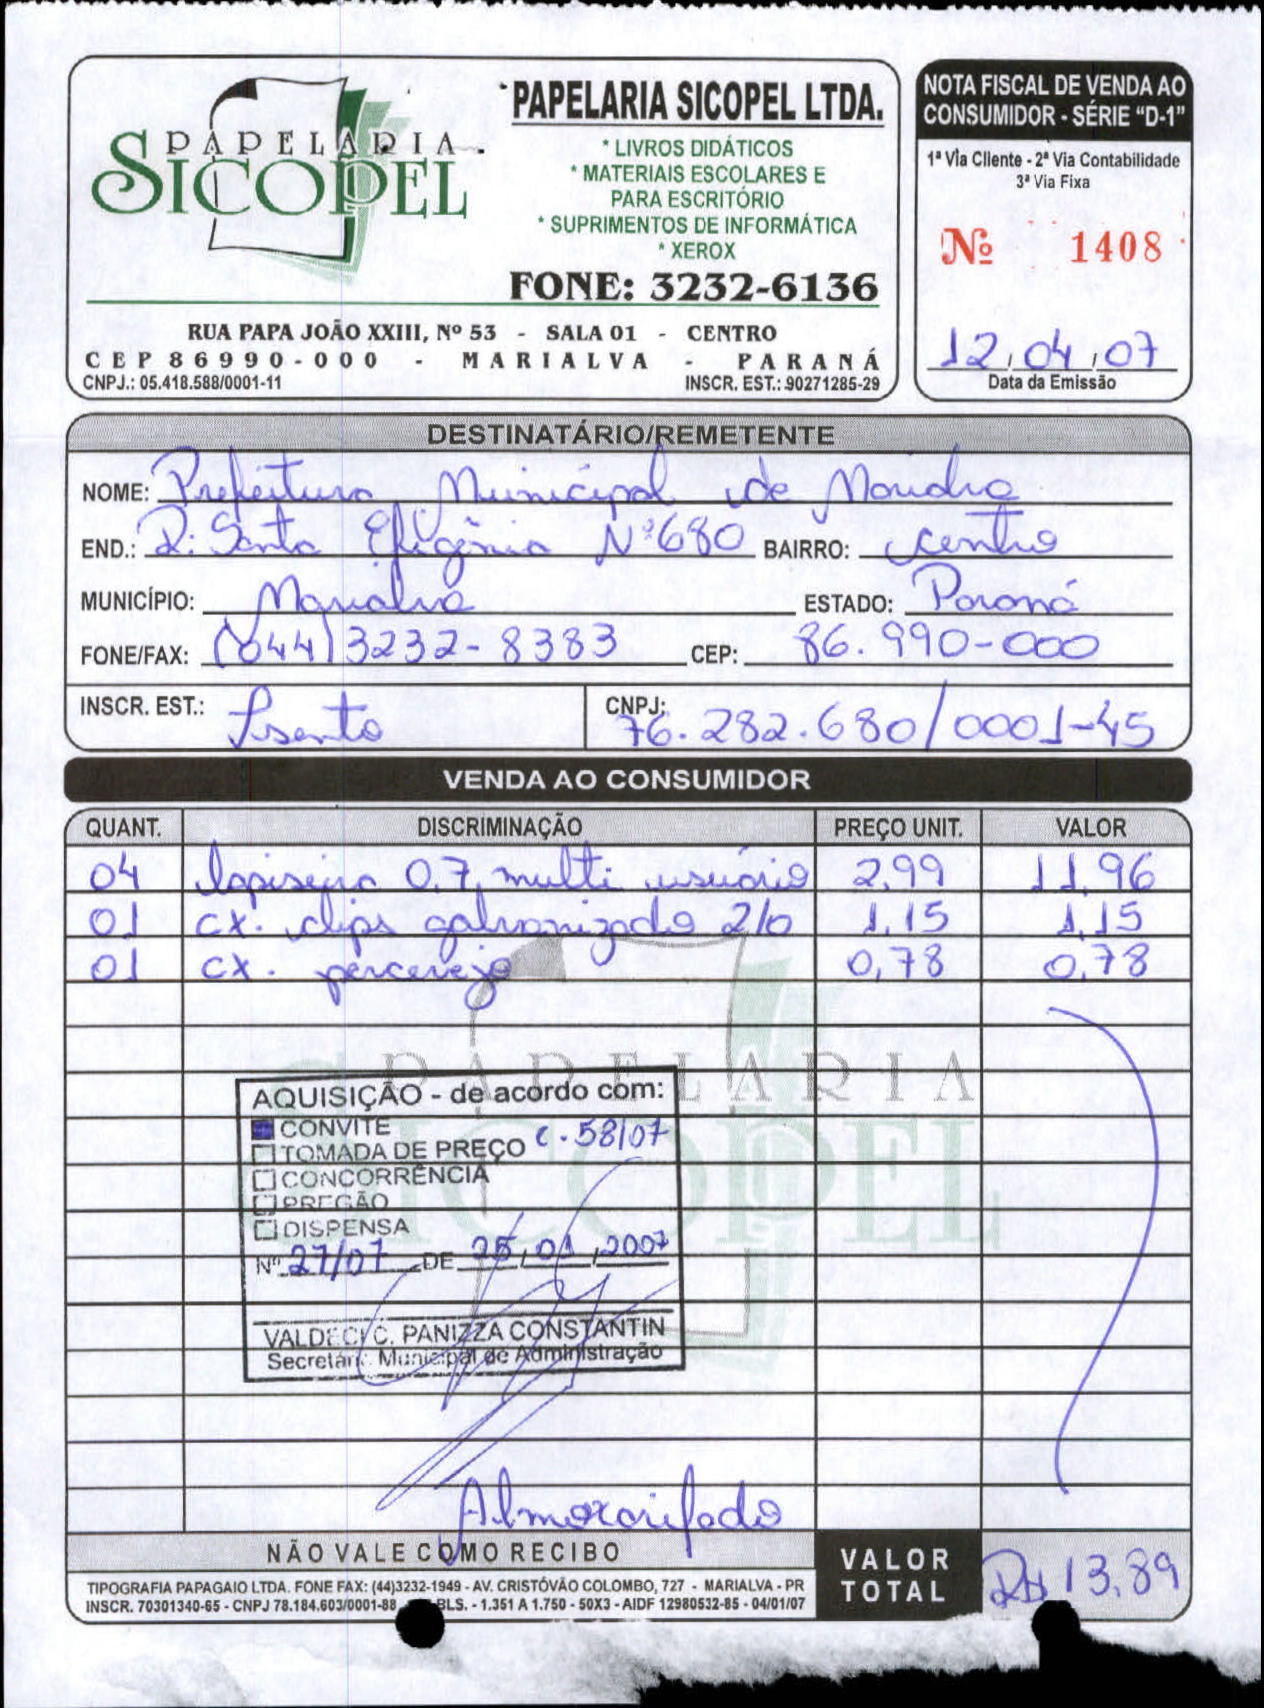 PAPELARIA
SICOPEL
PAPELARIA SICOPEL LTDA.
* LIVROS DIDÁTICOS
* MATERIAIS ESCOLARES E
PARA ESCRITÓRIO
* SUPRIMENTOS DE INFORMÁTICA
* XEROX
FONE: 3232-6136
RUA PAPA JOÃO XXIII, Nº 53 - SALA 01 - CENTRO
CEP 86990-000 - MARIALVA - PARANÁ
CNPJ.: 05.418.588/0001-11 INSCR. EST.: 90271285-29
NOTA FISCAL DE VENDA AO
CONSUMIDOR - SÉRIE “D-1”
1ª Via Cliente - 2ª Via Contabilidade
3ª Via Fixa
Nº 1408
12/04/07
Data da Emissão
DESTINATÁRIO/REMETENTE
NOME: Prefeitura Municipal de
END.: R: Santa Efigênia Nº 680 BAIRRO: centro
MUNICÍPIO: Marialva ESTADO: Paraná
FONE/FAX: (044) 3232-8383 CEP: 86.990-000
INSCR. EST.: Isento CNPJ: 76.282.680/0001-45
VENDA AO CONSUMIDOR
QUANT. DISCRIMINAÇÃO PREÇO UNIT. VALOR
04 lapiseira 0,7 multi usuário 2,99 11,96
01 cx. clips galvanizado 2/0 1,15 1,15
01 cx. percevejo 0,78 0,78
PAPELARIA
SICOPEL
AQUISIÇÃO - de acordo com:
CONVITE
TOMADA DE PREÇO c. 58/07
CONCORRÊNCIA
PREGÃO
DISPENSA
Nº 27/07 DE 25/01/2007
VALDECI C. PANIZZA CONSTANTIN
Secretári. Municipal de Administração
Almoxarifado
NÃO VALE COMO RECIBO
TIPOGRAFIA PAPAGAIO LTDA. FONE FAX: (44)3232-1949 - AV. CRISTÓVÃO COLOMBO, 727 - MARIALVA - PR
INSCR. 70301340-65 - CNPJ 78.184.603/0001-88 BLS. - 1.351 A 1.750 - 50X3 - AIDF 12980532-85 - 04/01/07
VALOR
TOTAL
R$ 13,89